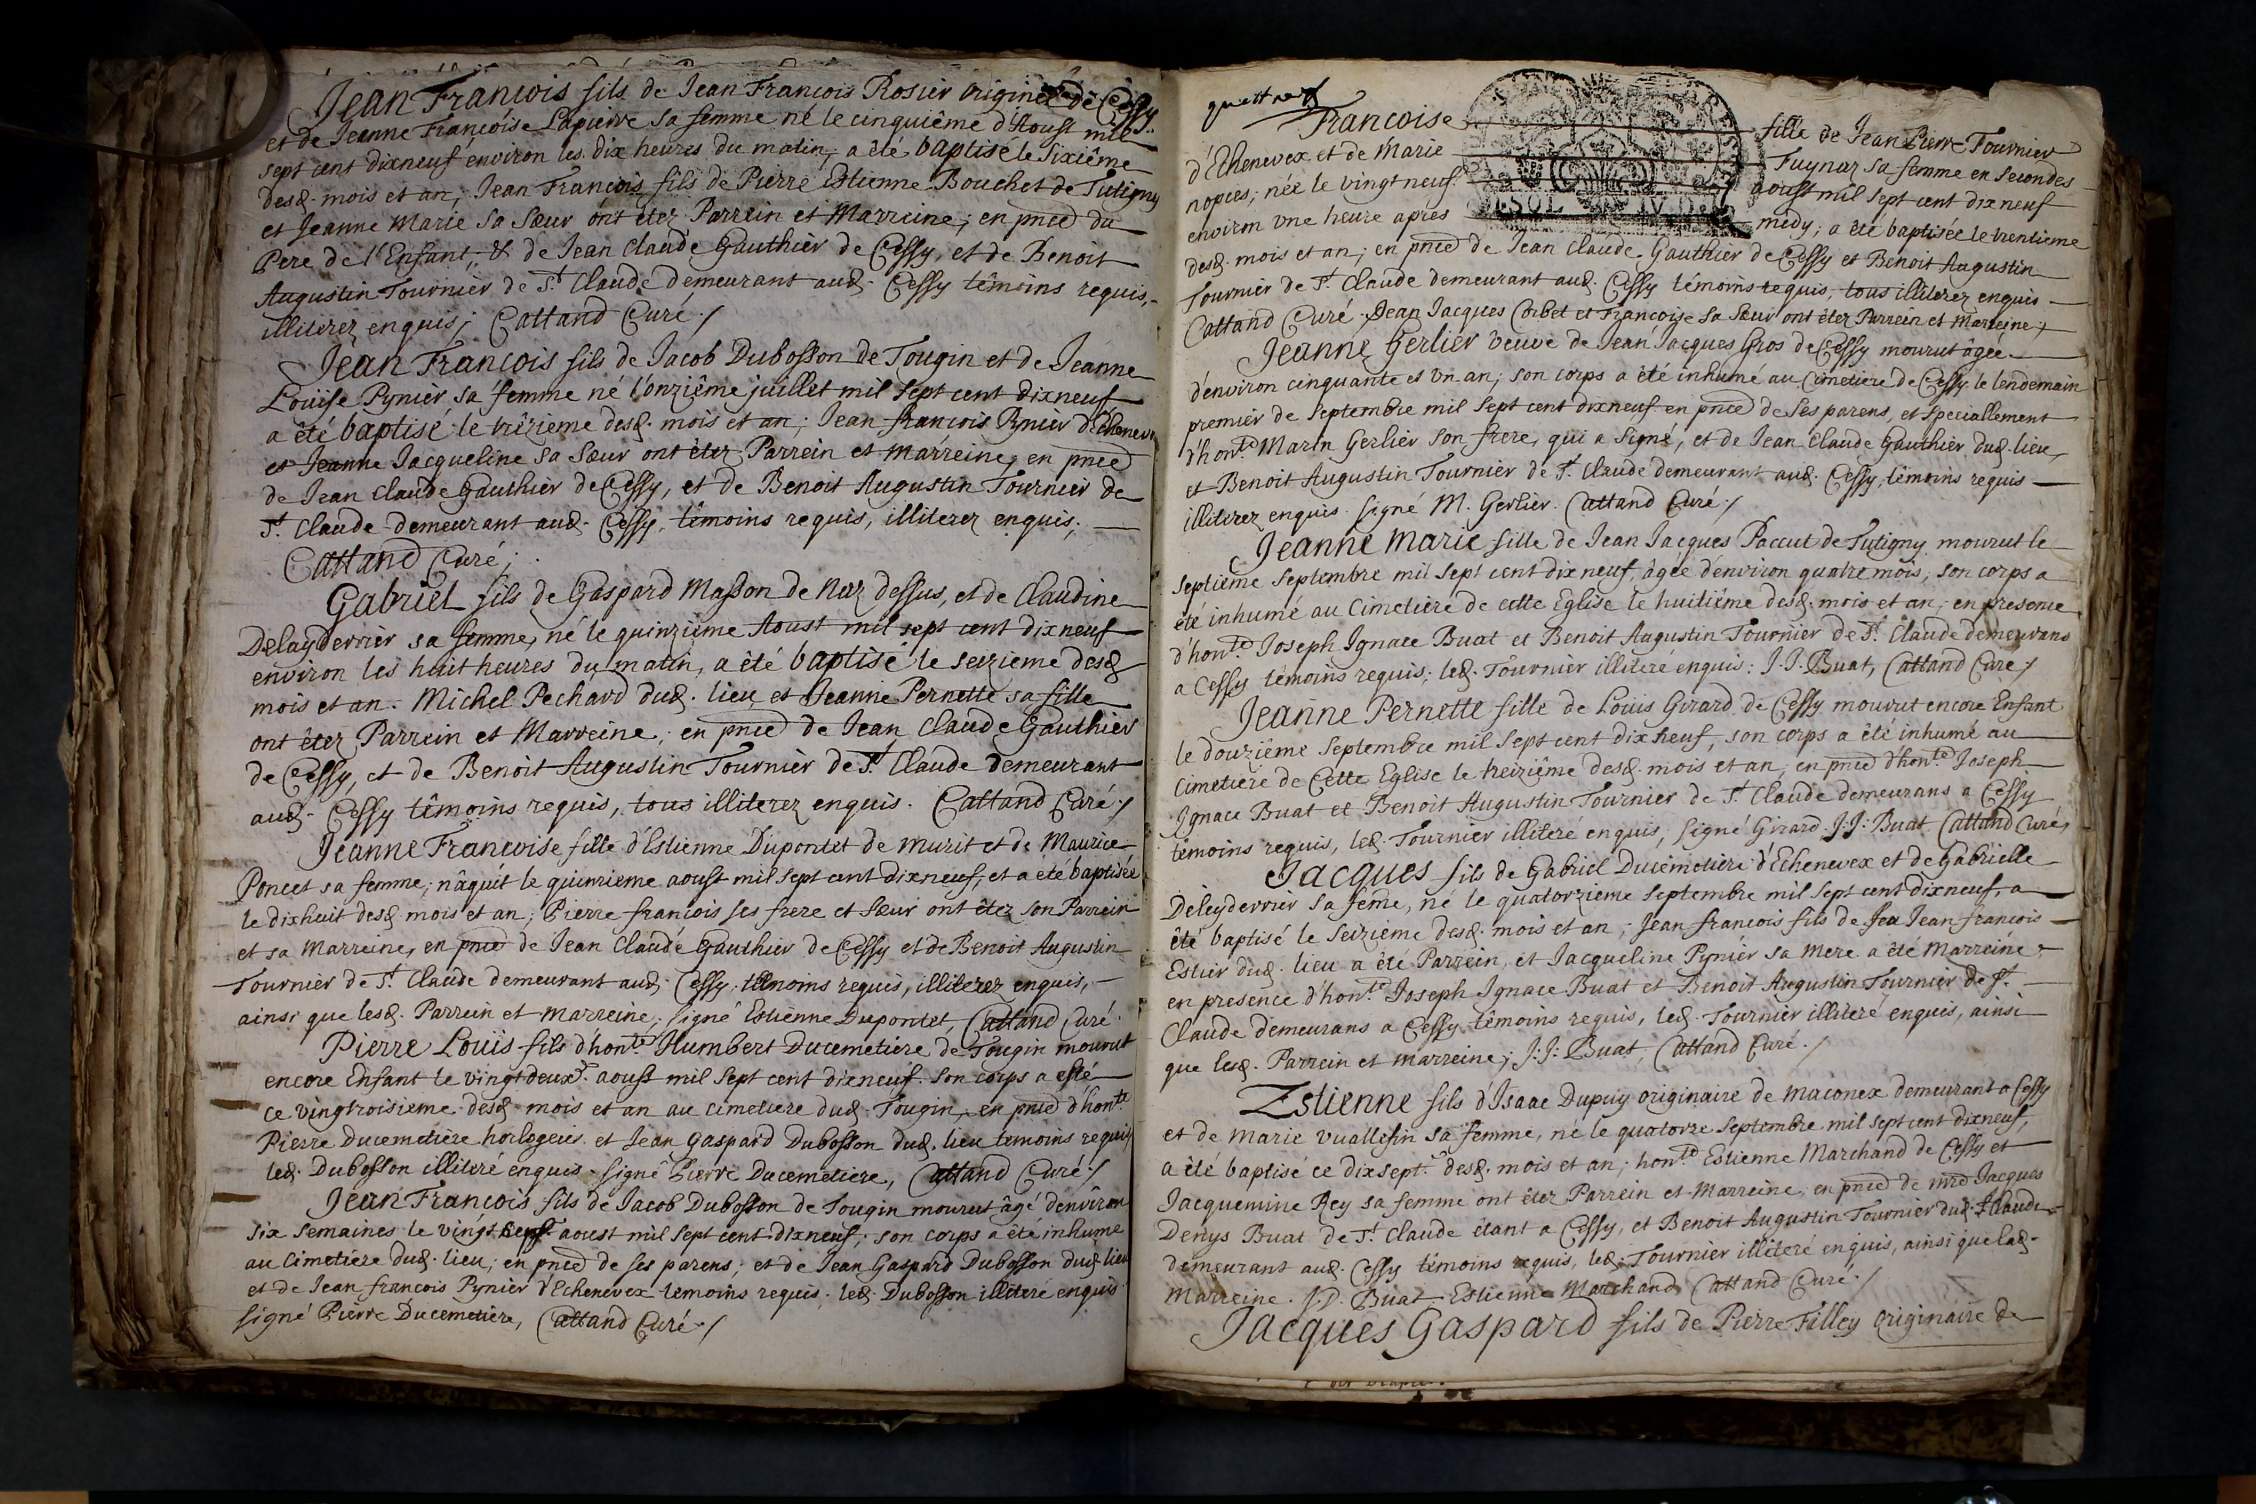 Jean Francois fils de Jean Francois Rosier originé de Cessy
et de Jeanne Francoise Lapierre sa femme né le cinquiême d'Aoust mil
sept cent dixneuf environ les dix heures du matin, a été baptisé le Sixiême
desd. mois et an; Jean François fils de Pierre Estienne Bouchet de Tutigny
et Jeanne Marie sa Sœur ont étez Parrein et Marreine; en pnce du
Pere de l'Enfant, & de Jean Claude Gauthier de Cessy, et de Benoit
Augustin Tournier de St. Claude demeurant aud. Cessy têmoins requis,
illiterez enquis; Cattand Curé./
Jean François fils de Jacob Dubosson de Tougin et de Jeanne
Loüise Pynier, sa femme né l'onziême juillet mil sept cent dixneuf
a êté baptisé le trêzieme desd. mois et an; Jean francois Pynier d'Echenevex
et Jeanne Jacqueline sa Sœur ont étez Parrein et Marreine, en pnce
de Jean Claude Gauthier de Cessy, et de Benoit Augustin Tournier de
St. Claude demeurant aud. Cessy, têmoins requis, illiterez enquis;
Cattand Curé;
Gabriel fils de Gaspard Masson de Naz dessus, et de Claudine
Delayderrier sa femme, né le quinzieme Aoust mil sept cent dixneuf
environ les huit heures du matin, a été baptisé le seizieme desd.
mois et an. Michel Pechard dud. lieu et Jeanne Pernette sa fille
ont êtez Parrein et Marreine, en pnce de Jean Claude Gauthier
de Cessy, et de Benoit Augustin Tournier de St. Claude demeurant
aud. Cessy têmoins requis, tous illiterez enquis. Cattand Curé./
Jeanne Francoise fille d'Estienne Dupontet de Murit et de Maurice
Poncet sa femme, nâquit le quinzieme aoust mil sept cent dixneuf, et a été baptisée
le dixhuit desd. mois et an; Pierre francois ses frere et Sœur ont êtez son Parrein
et sa Marreine, en pnce de Jean Claude Gauthier de Cessy et de Benoit Augustin
Tournier de St. Claude demeurant aud. Cessy, têmoins requis, illiterez enquis,
ainsi que lesd. Parrein et Marreine; signé Estienne Dupontet, Cattand Curé.
Pierre Loüis fils d'honte. Humbert Ducemetiere de Tougin mourut
encore Enfant le vingtdeuxe. aoust mil sept cent dixneuf. Son corps a esté
ce vingtroisieme desd. mois et an au cimetiere dud. Tougin, en pnce d'honte.
Pierre Ducemetiere horlogeur et Jean Gaspard Dubosson dud. lieu temoins requis
led. Dubosson illiteré enquis. signé Pierre Ducemetiere, Cattand Curé./
Jean Francois fils de Jacob Dubosson de Tougin mourut âgé d'environ
six semaines le vingt aoust mil sept cent dixneuf; son corps a été inhumé
au Cimetiere dud. lieu; en pnce de ses parens, et de Jean Gaspard Dubosson dud. lieu
et de Jean francois Pynier d'Echenevex temoins requis. led. Dubosson illiteré enquis
signé Pierre Ducemetiere, Cattand Curé./
Francoise fille de Jean Pierre Fournier
d'Echenevex et de Marie Fuynaz sa femme en secondes
nopces; née le vingtneuf aoust mil sept cent dixneuf
environ vne heure après midy; a êté baptisée le trentieme
desd. mois et an; en pnce de Jean Claude Gauthier de Cessy et Benoit Augustin
Tournier de St. Claude demeurant aud. Cessy témoins requis, tous illiterez enquis
Cattand Curé. Jean Jacques Corbet et Françoise sa Sœur ont étez Parrein et Marreine./
Jeanne Gerlier veuve de Jean Jacques Gros de Cessy mourut âgée
d'environ cinquante et vn an; son corps a été inhumé au Cimetiere de Cessy le lendemain
premier de Septembre mil sept cent dixneuf en pnce de ses parens, et speciallement
d'honte. Marin Gerlier son frere, qui a signé, et de Jean Claude Gauthier dud. lieu,
et Benoit Augustin Tournier de St. Claude demeurant aud. Cessy, têmoins requis
illiterez enquis. signé M. Gerlier. Cattand Curé./
Jeanne Marie fille de Jean Jacques Paccut de Tutigny mourut le
septieme septembre mil sept cent dixneuf, âgée d'environ quatre mois, son corps a
été inhumé au Cimetiere de cette Eglise le huitiême desd. mois et an, en presence
d'honte. Joseph Ignace Buat et Benoit Augustin Tournier de St. Claude demeurans
a Cessy têmoins requis; led. Tournier illiteré enquis: J. J. Buat, Cattand Curé./
Jeanne Pernette fille de Loüis Girard de Cessy mourut encore Enfant
le douziême septembre mil sept cent dixneuf, son corps a êté inhumé au
Cimetiere de Cette Eglise le treiziême desd. mois et an, en pnce d'honte. Joseph
Ignace Buat et Benoit Augustin Tournier de St. Claude demeurans a Cessy
têmoins requis, led. Tournier illiteré enquis, signé Girard. J: J: Buat Cattand Curé,
Jacques fils de Gabriel Ducemetiere d'Echenevex et de Gabrielle
Deleyderrier sa feme, né le quatorzieme septembre mil sept cent dixneuf, a
êté baptisé le seizieme desd. mois et an; Jean francois fils de feu Jean francois
Estier dud. lieu a été Parrein, et Jacqueline Pynier sa mere a êté Marreine
en presence d'honte. Joseph Ignace Buat et Benoit Augustin Tournier de St.
Claude demeurans a Cessy têmoins requis, led. Tournier illiteré enquis, ainsi
que lesd. Parrein et marreine; J: J: Buat, Cattand Curé./
Estienne fils d'Isaac Dupuy originaire de Maconex demeurant a Cessy
et de Marie Vuallefin sa femme, né le quatorze septembre mil sept cent dixneuf,
a êté baptisé ce dixsept.e desd. mois et an; honte. Estienne Marchand de Cessy et
Jacquemine Rey sa femme ont étez Parrein et Marreine, en pnce de mre Jacques
Denys Buat de St. Claude étant a Cessy, et Benoit Augustin Tournier dud. St Claude
demeurant aud. Cessy têmoins requis, led. Tournier illiteré enquis, ainsi que lad.
Marreine. J. D. Buat Estienne Marchand Cattand Curé./
Jacques Gaspard fils de Pierre Filley originaire de